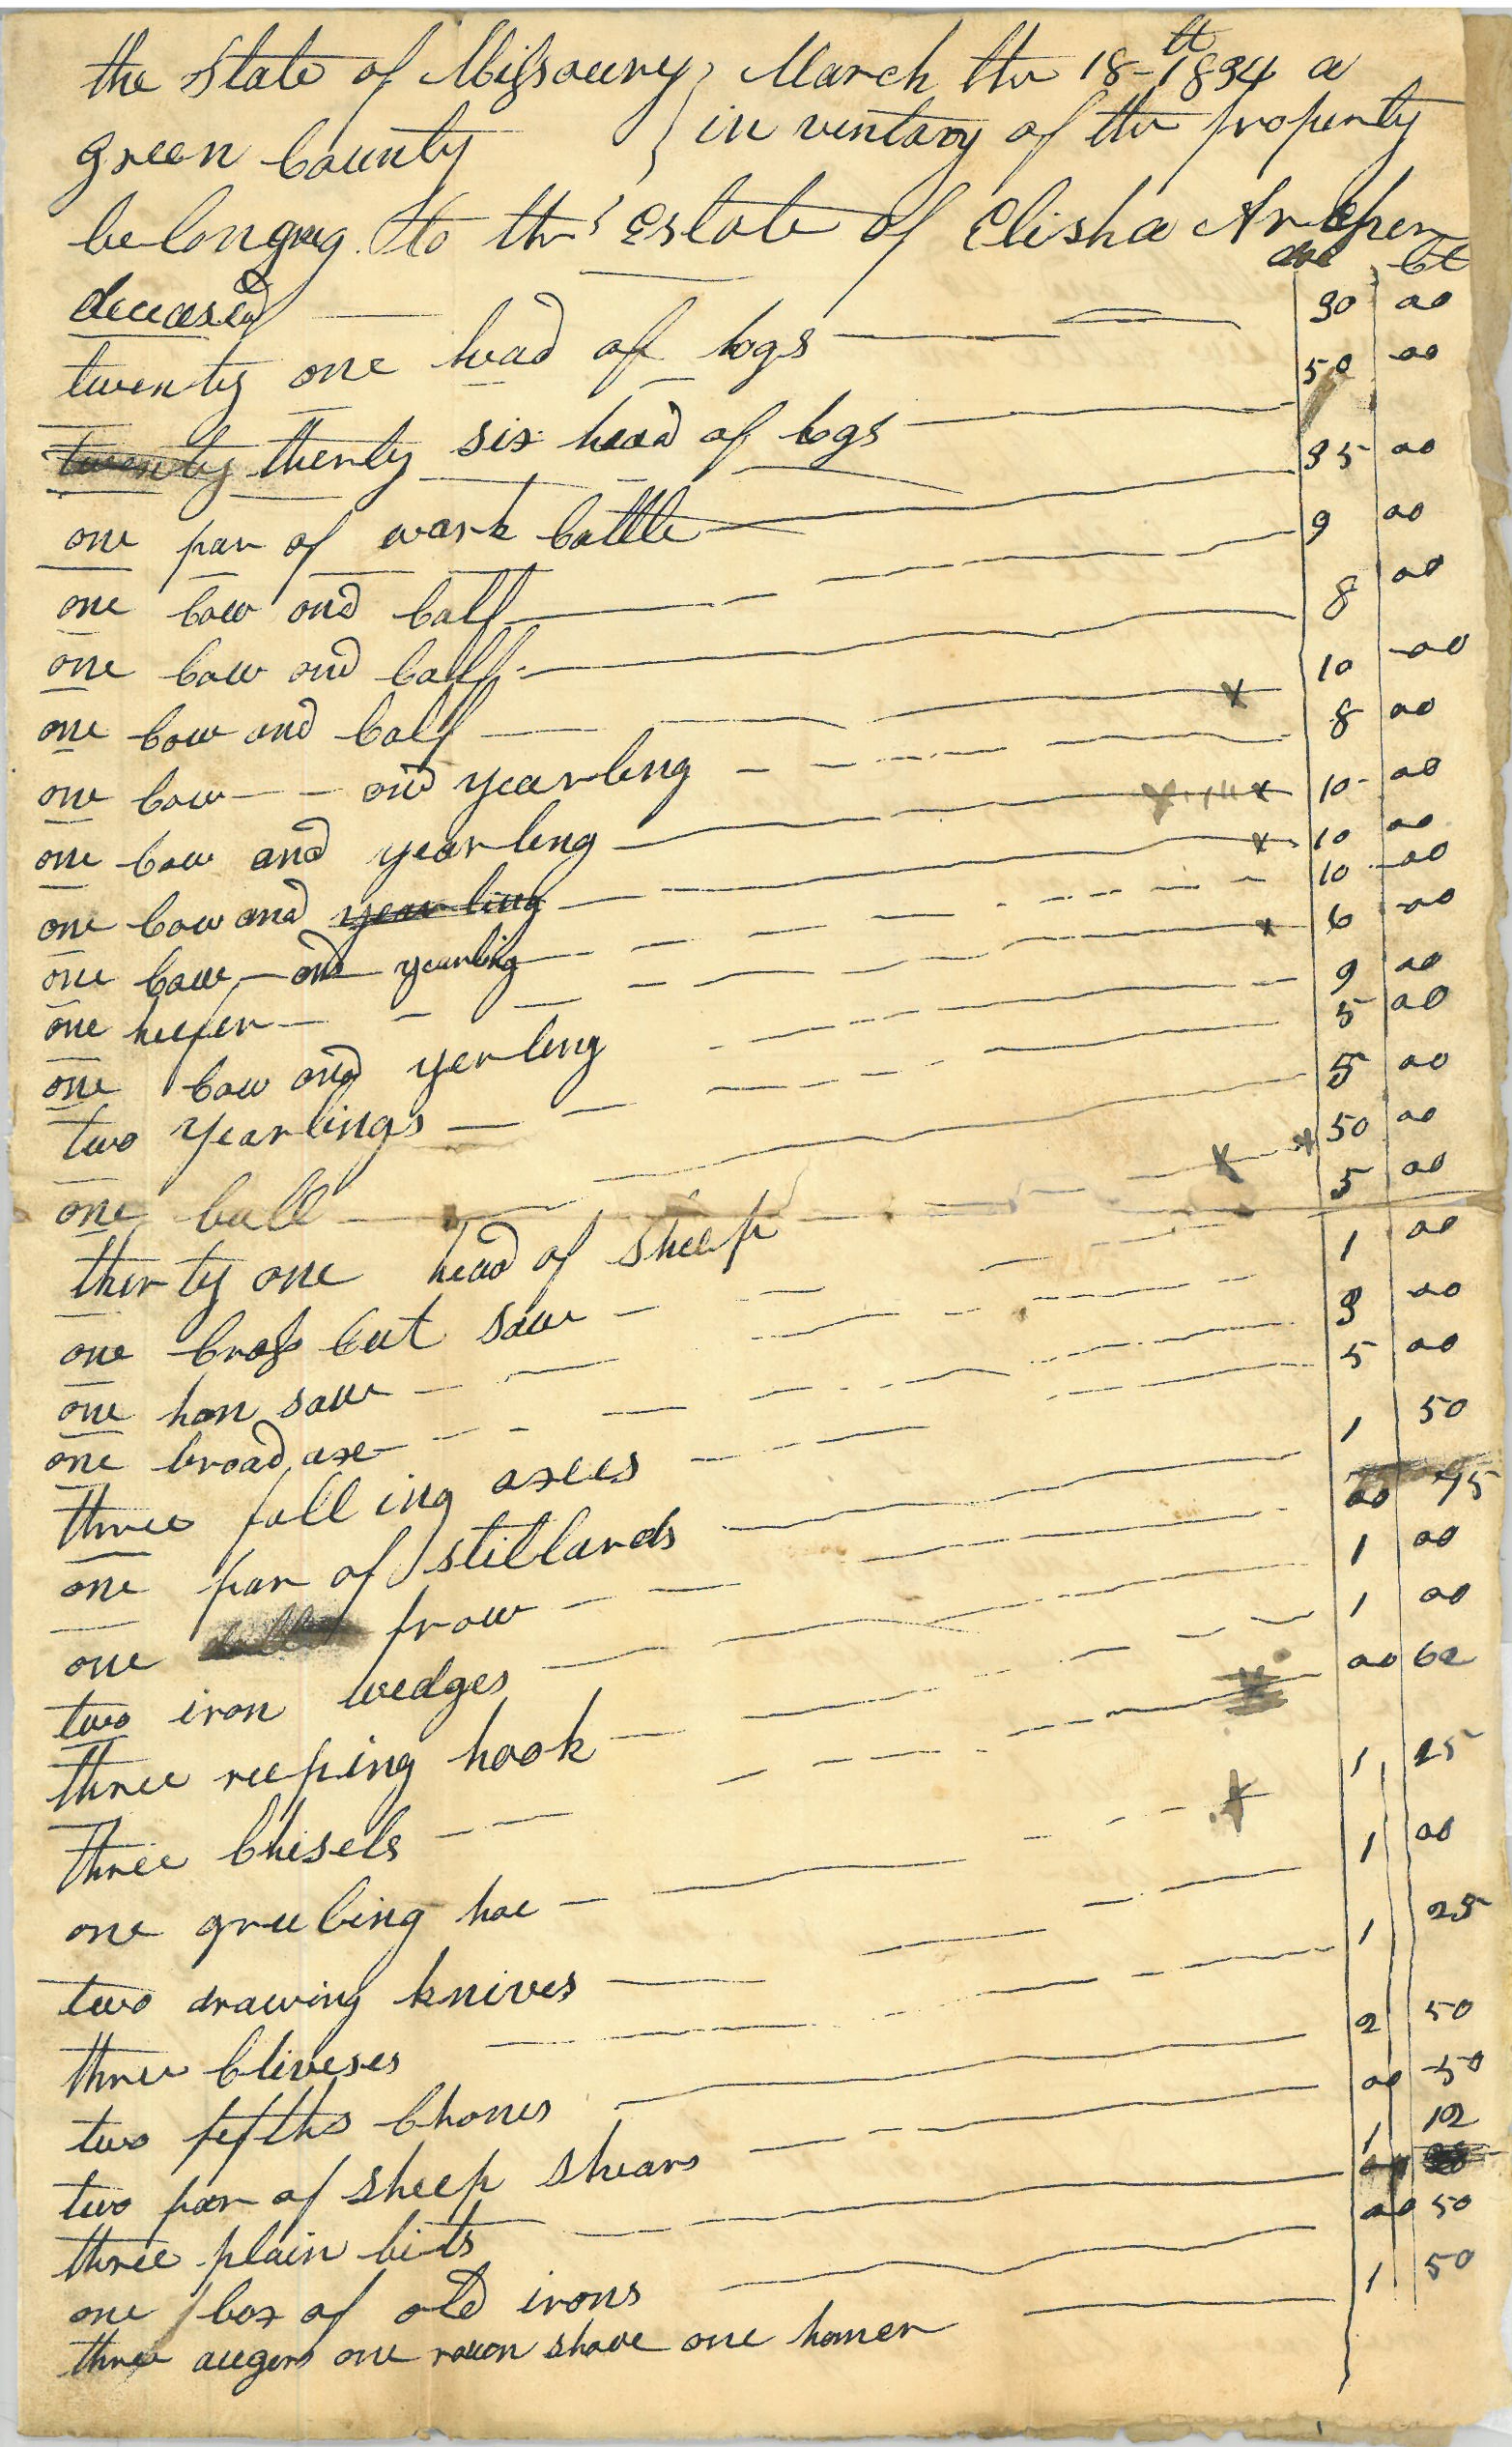 the State of Missoury } March the 18th 1834 a
green County } in ventary of the property
belonging to the Estate of Elisha Archer
deceased dol Ct
twenty one head of hogs 30 00
twenty therty six head of hogs 50 00
one par of wark Cattle 35 00
one Cow and Calf 9 00
one Cow and Calf 8 00
one Cow and Calf 10 00
one Cow and yearling 8 00
one Cow and yearling 10 00
one Cow and yearling 10 00
one Cow and yearling 10 00
one heifer 6 00
one Cow and yerling 9 00
two yearlings 5 00
one bull 5 00
thirty one head of sheep 50 00
one Cross Cut saw 5 00
one han saw 1 00
one broad axe 3 00
three falling axes 5 00
one par of stillards 1 50
one frow 00 75
two iron wedges 1 00
three reeping hook 1 00
three Chisels 00 62
one grubing hoe 1 25
two drawing knives 1 00
three Cliveses 1 25
two fifths Chones 2 50
two par of sheep shears 00 50
three plain bits 1 12
one box of old irons 00 50
three augers one roun shave one hamer 1 50